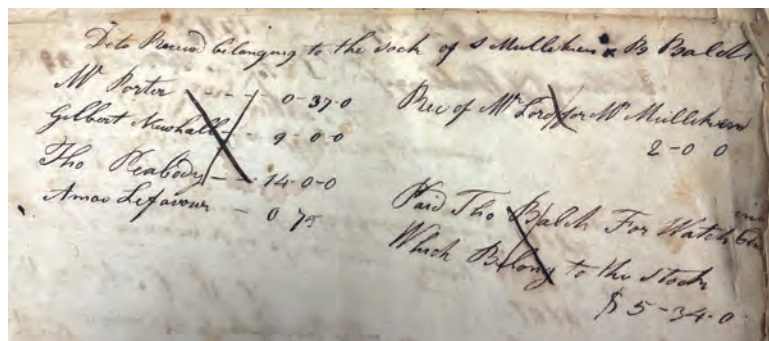 Dets Receivd belonging to the sock of S Mulliken & B Balch
Mr Porter - - - 0-37-0
Gilbert Newhall - 9-0-0
Tho Peabody - - 14-0-0
Amos Lefavour - 0 75
Rec of Mr Lord for Mr Mulliken
2-0 0
Paid Tho Balch For Watch
Which Belong to the stock
$ 5-34-0